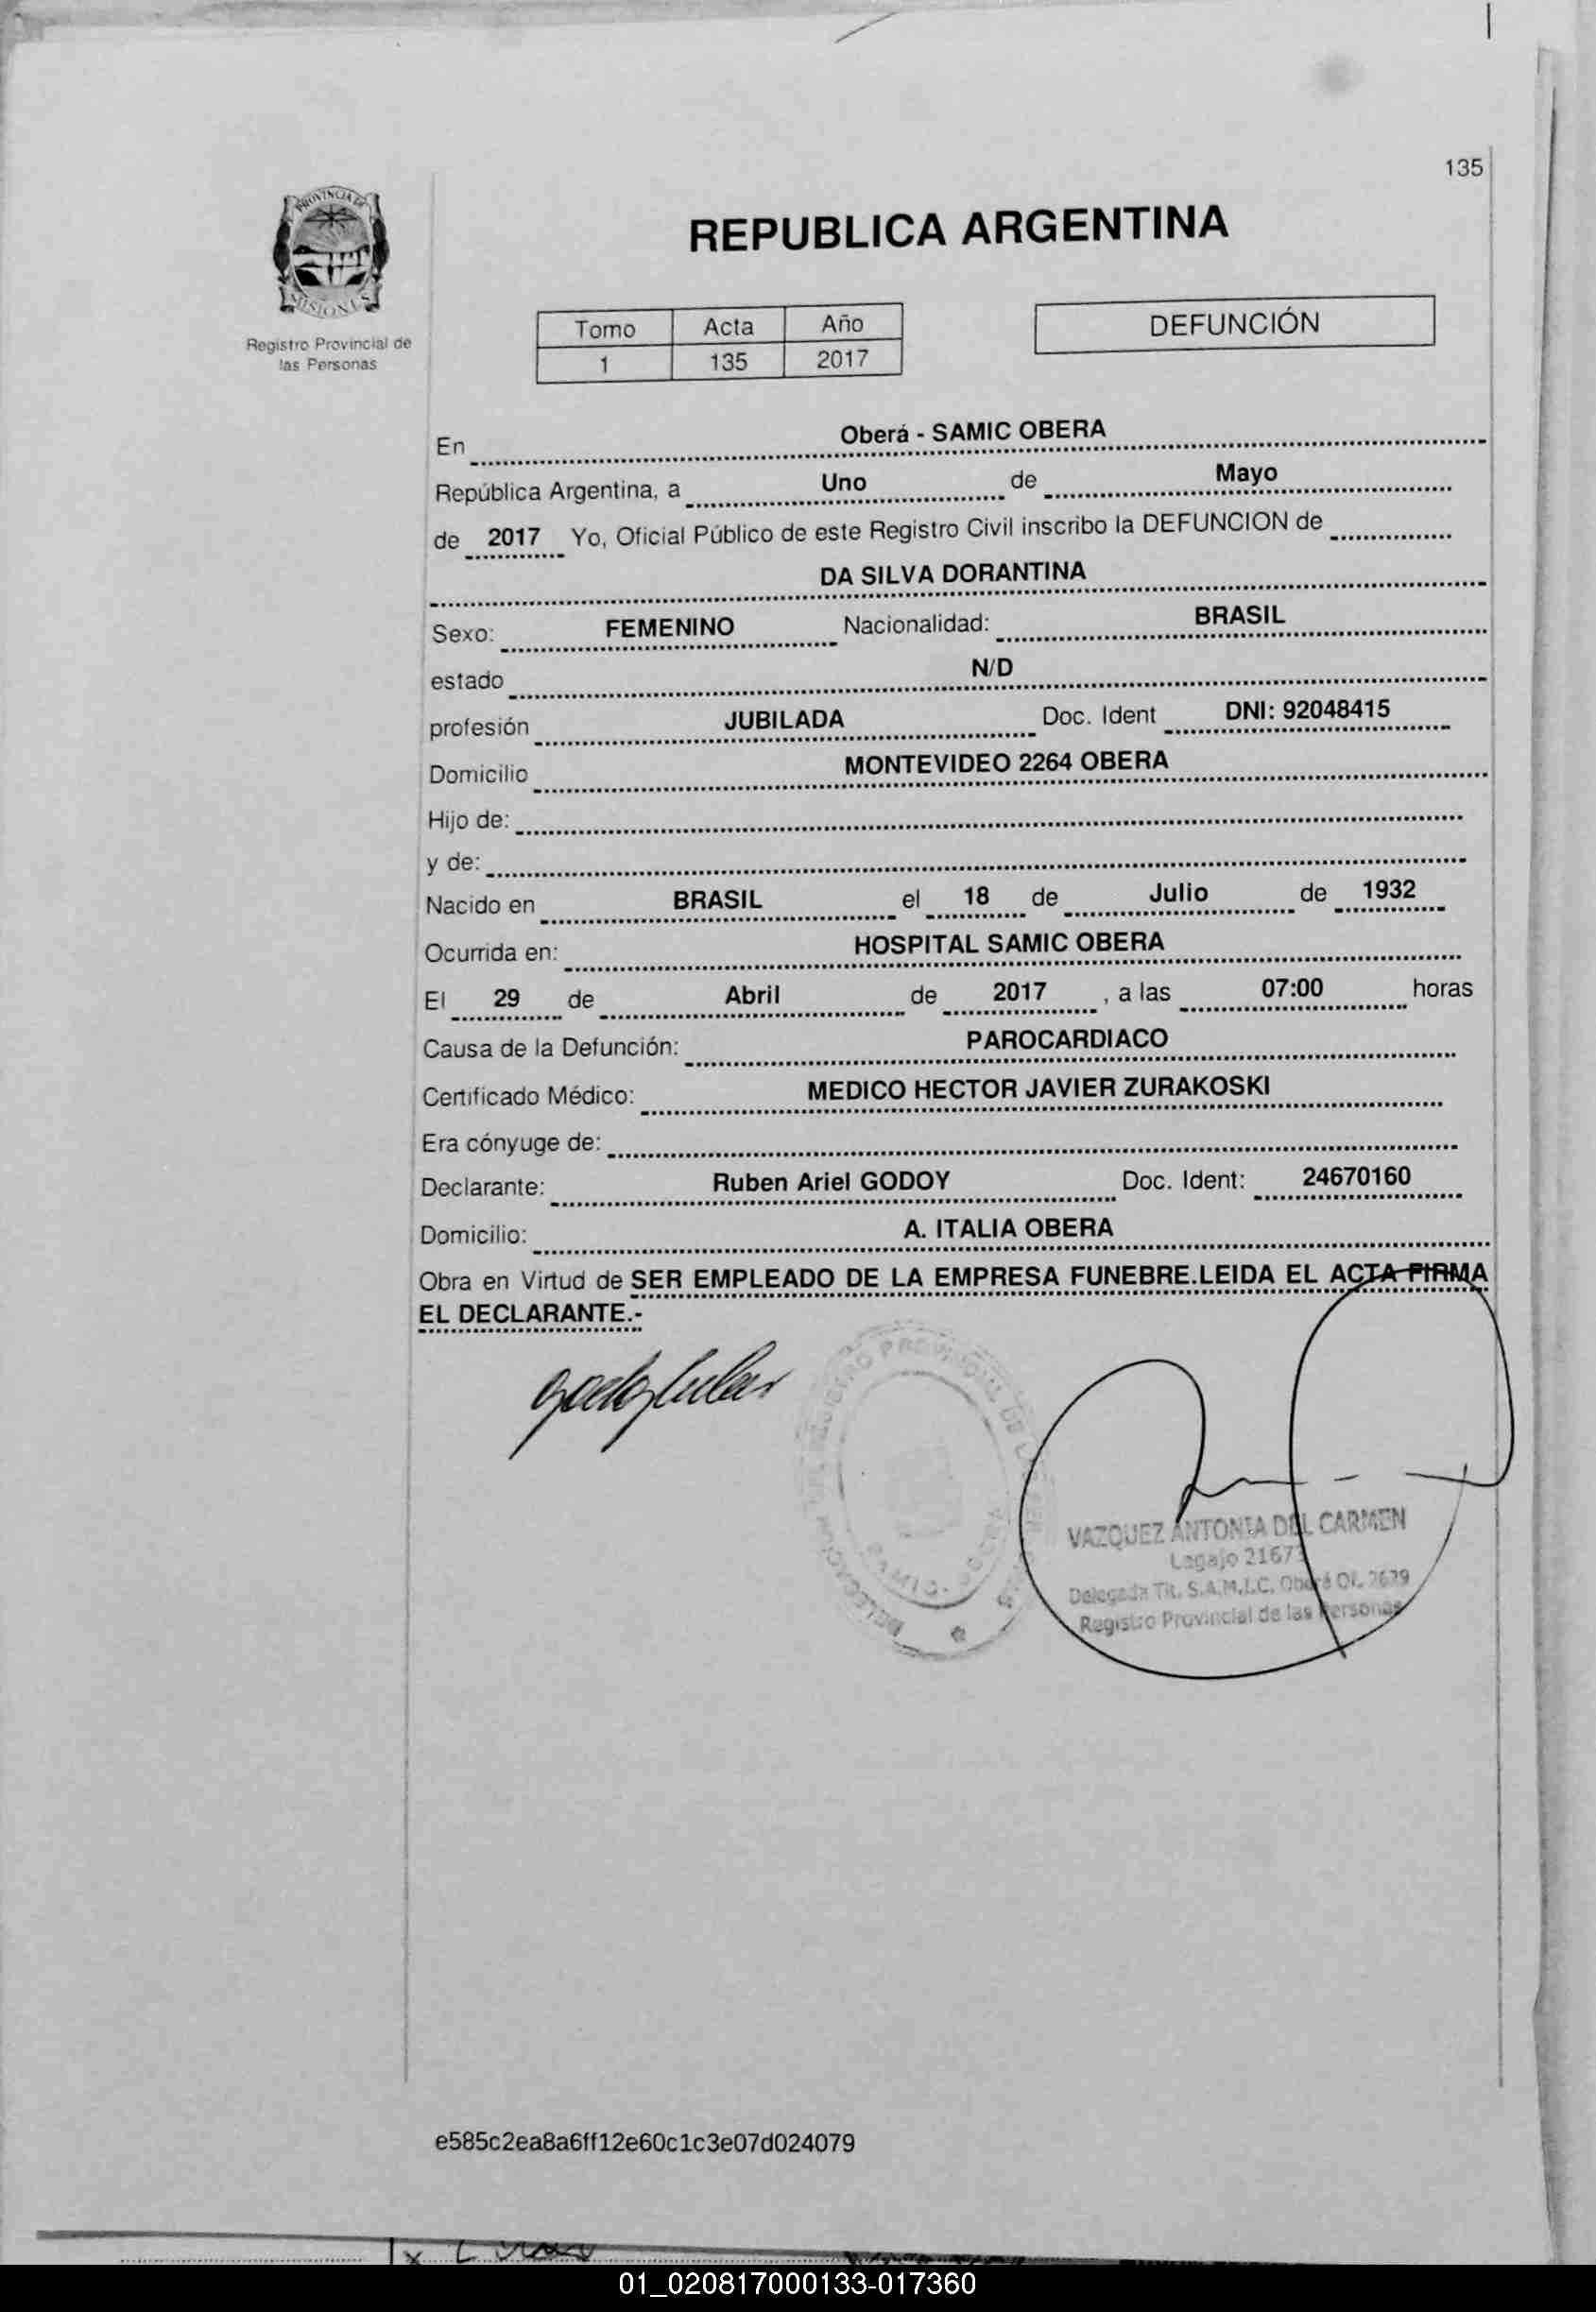 135
PROVINCIA DE
MISIONES
Registro Provincial de
las Personas
REPUBLICA ARGENTINA
Tomo Acta Año
1 135 2017
DEFUNCIÓN
En Oberá - SAMIC OBERA
República Argentina, a Uno de Mayo
de 2017 Yo, Oficial Público de este Registro Civil inscribo la DEFUNCION de
DA SILVA DORANTINA
Sexo: FEMENINO Nacionalidad: BRASIL
estado N/D
profesión JUBILADA Doc. Ident DNI: 92048415
Domicilio MONTEVIDEO 2264 OBERA
Hijo de:
y de:
Nacido en BRASIL el 18 de Julio de 1932
Ocurrida en: HOSPITAL SAMIC OBERA
El 29 de Abril de 2017 , a las 07:00 horas
Causa de la Defunción: PAROCARDIACO
Certificado Médico: MEDICO HECTOR JAVIER ZURAKOSKI
Era cónyuge de:
Declarante: Ruben Ariel GODOY Doc. Ident: 24670160
Domicilio: A. ITALIA OBERA
Obra en Virtud de SER EMPLEADO DE LA EMPRESA FUNEBRE.LEIDA EL ACTA FIRMA
EL DECLARANTE.-
VAZQUEZ ANTONIA DEL CARMEN
Legajo
Delegada Tit. S.A.M.I.C. Oberá Of. 2639
Registro Provincial de las Personas
e585c2ea8a6ff12e60c1c3e07d024079
01_020817000133-017360